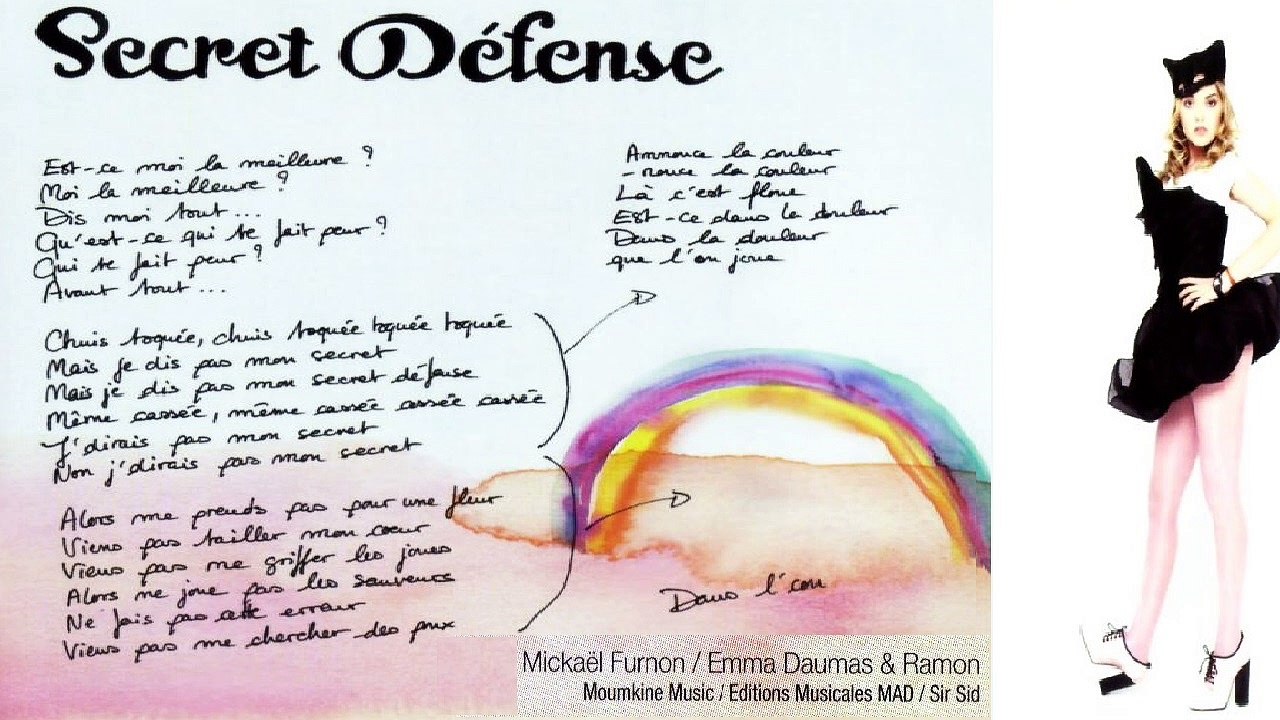 Secret Défense
Est-ce moi la meilleure ?
Moi la meilleure ?
Dis moi tout ...
Qu'est-ce qui te fait peur ?
Qui te fait peur ?
Avant tout ...
Chuis toquée, chuis toquée toquée toquée
Mais je dis pas mon secret
Mais je dis pas mon secret défense
Même cassée, même cassée assée cassée
J'dirais pas mon secret
Non j'dirais pas mon secret
Alors me prends pas pour une fleur
Viens pas tailler mon coeur
Viens pas me griffer les joues
Alors me joue pas les sauveurs
Ne fais pas cette erreur
Viens pas me chercher des poux
Annonce la couleur
-nonce la couleur
Là c'est floue
Est-ce dans la douleur
Dans la douleur
que l'on joue
Dans l'cou
Mickaël Furnon / Emma Daumas & Ramon
Moumkine Music / Editions Musicales MAD / Sir Sid